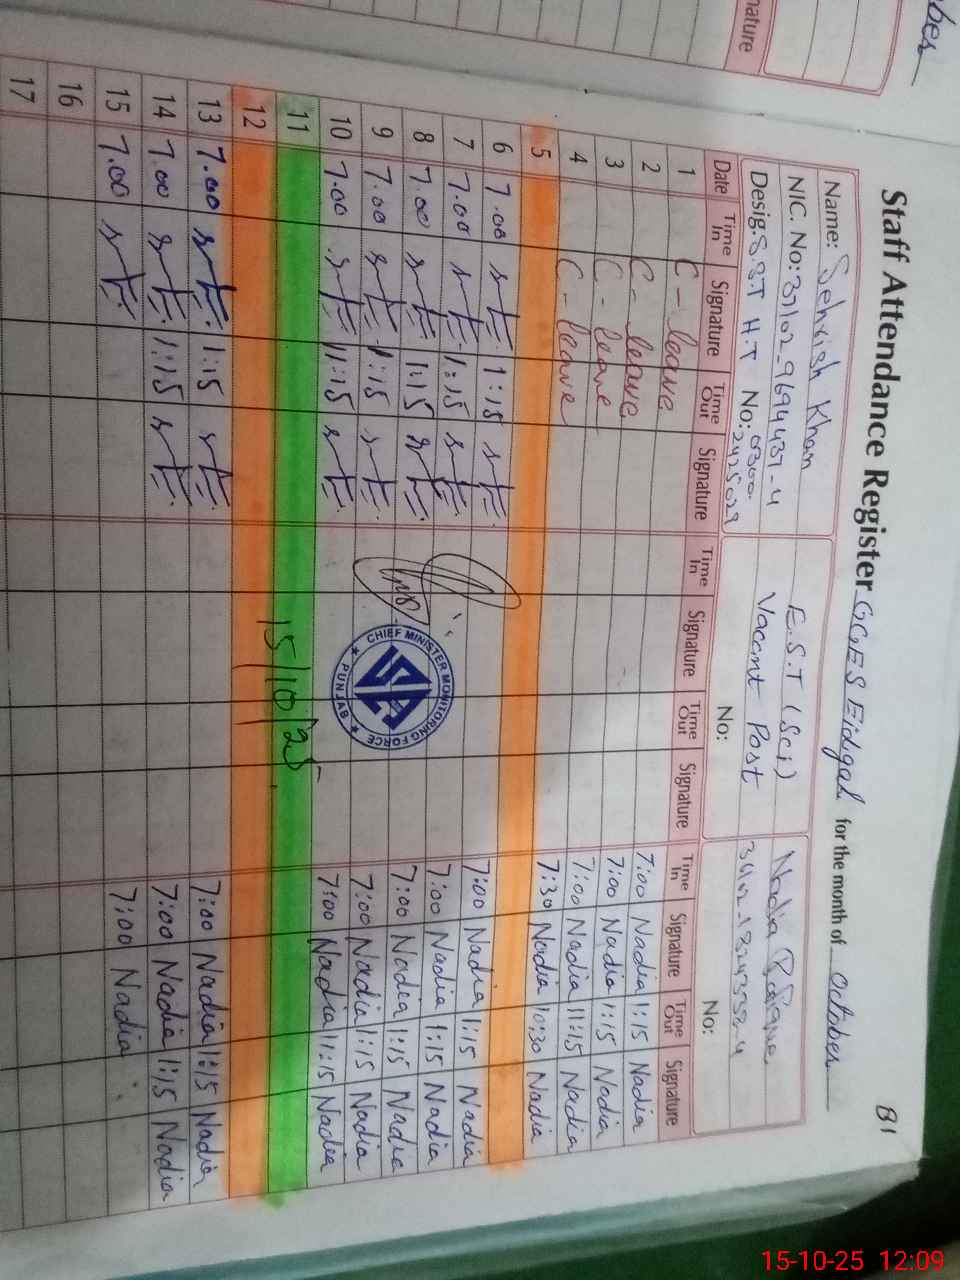 Staff Attendance Register GGES Eidgah for the month of October 81
Name: Sehrish Khan E.S.T (Sci) Nadia
NIC. No: 37102-9694437-4 Vacant Post
Desig. S.S.T H.T No: 0300-2425029 No: No:
Date Time In Signature Time Out Signature Time In Signature Time Out Signature Time In Signature Time Out Signature
1 C-leave 7:00 Nadia 1:15 Nadia
2 C-leave 7:00 Nadia 1:15 Nadia
3 C-leave 7:00 Nadia 11:15 Nadia
4 C-leave 7:30 Nadia 10:30 Nadia
5
6 7.00 1:15 7:00 Nadia 1:15 Nadia
7 7.00 1:15 7:00 Nadia 1:15 Nadia
8 7.00 1:15 7:00 Nadia 1:15 Nadia
9 7.00 1:15 7:00 Nadia 1:15 Nadia
10 7.00 11:15 7:00 Nadia 11:15 Nadia
CHIEF MINISTER MONITORING FORCE
PUNJAB
11
15/10/25
12
13 7.00 1:15 7:00 Nadia 1:15 Nadia
14 7.00 1:15 7:00 Nadia 1:15 Nadia
15 7.00 7:00 Nadia
16
17
15-10-25 12:09